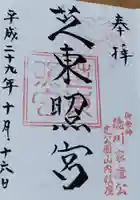 奉拝
芝東照宮
平成二十九年十月二十六日
御祭神
徳川家康公
芝公園山内鎮座